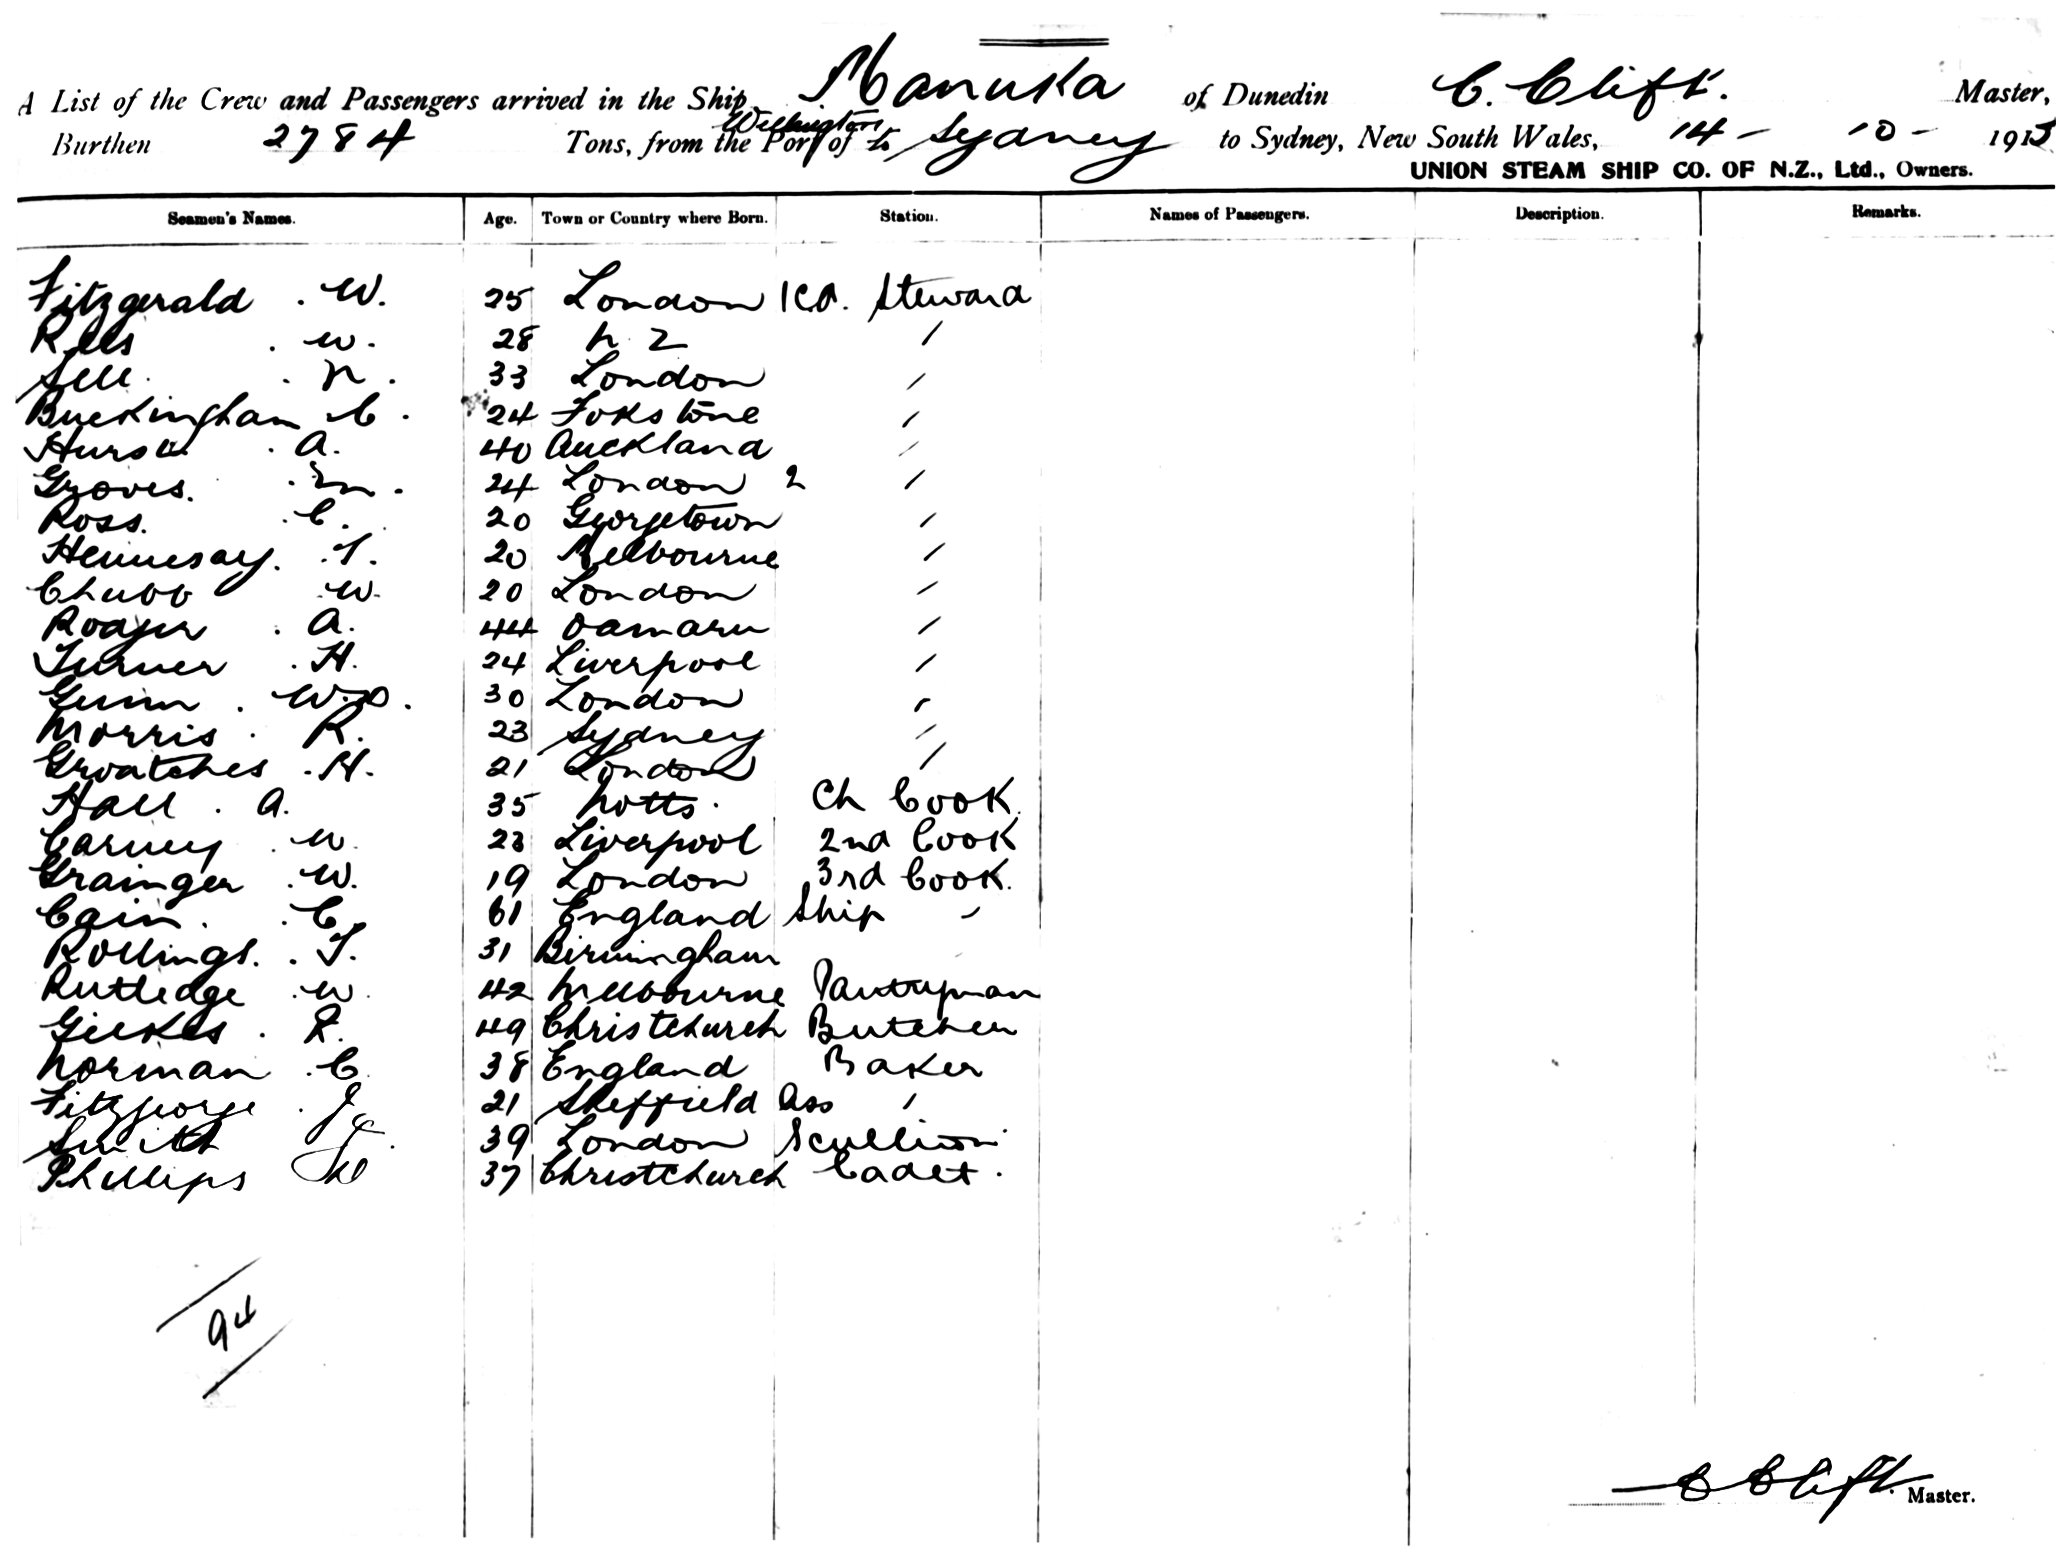 Manuka C. Clift.
A List of the Crew and Passengers arrived in the Ship of Dunedin Master,
Wellington
Burthen 2784 Tons, from the Port of to Sydney to Sydney, New South Wales, 14 - 10 - 1915
UNION STEAM SHIP CO. OF N.Z., Ltd., Owners.
Seamen's Names. Age. Town or Country where Born. Station. Names of Passengers. Description. Remarks.
Fitzgerald . W. 25 London Steward
Rees . W. 28 N Z /
Sell . N . 33 London /
Buckingham C . 24 Fokstone /
Hurst . A. 40 Auckland /
Groves. . M . 24 London 2 /
Ross. . C. 20 Georgetown /
Hennesay. . T. 20 Melbourne /
Chubb W. 20 London /
Rodger . A. 44 Oamaru /
Turner . H. 24 Liverpool /
Gunn . W.D. 30 London /
Morris . R. 23 Sydney /
Groatches . H. 21 London /
Hall . A. 35 Notts. Ch Cook.
Carney . W. 23 Liverpool 2nd Cook
Grainger . W. 19 London 3rd Cook.
Cain . . C. 61 England Ship /
Rollings. . T. 31 Birmingham
Rutledge . W. 42 Melbourne Pantryman
Geekes . R. 49 Christchurch Butcher
Norman . C. 38 England Baker
Fitzgeorge . J 21 Sheffield Ass /
Smith 39 London Scullion
Phillips W 37 Christchurch Cadet .
94
C Clift. Master.